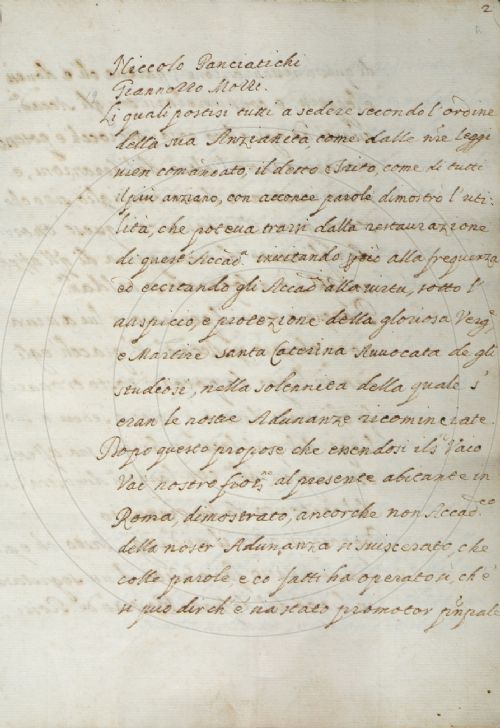 2
Niccolo Panciatichi
Giannozzo Morri.
Li quali postisi tutti a sedere secondo l'ordine
della sua Anzianità come dalle nre leggi
uien comandato, il detto, come di tutti
il più anziano, con acconce parole dimostro l'uti-
lità, che poteua trarsi dalla restaurazione
di quest' Accad.ª incitando alla frequenza
ed eccitando gli Accad.ⁱ alla uirtu, sotto l'
auspicio, e protezione della gloriosa Verg.ᵉ
e Martire Santa Caterina Auuocata de gli
studiosi, nella solennita della quale s'
eran le nostre Adunanze ricominciate.
Dopo questo propose che essendosi il S.ʳ
nostro al presente abitante in
Roma, dimostrato, ancorche non Accad.ᶜᵒ
della nostr' Adunanza si suiscerato, che
colle parole e co fatti ha operato si, ch'é
si può dir ch'é na stato promotor